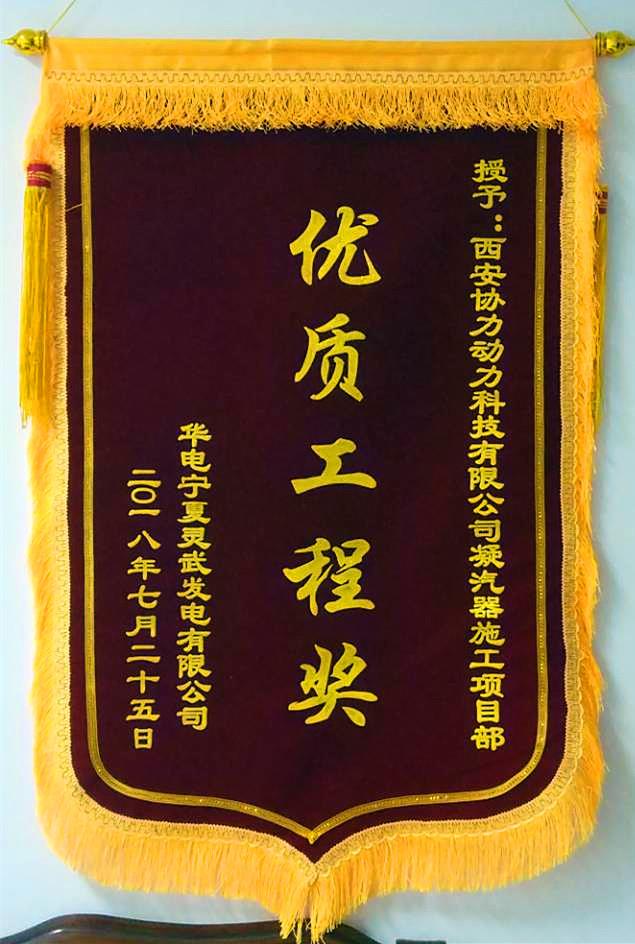 授予：西安协力动力科技有限公司凝汽器施工项目部
优质工程奖
华电宁夏灵武发电有限公司
二〇一八年七月二十五日